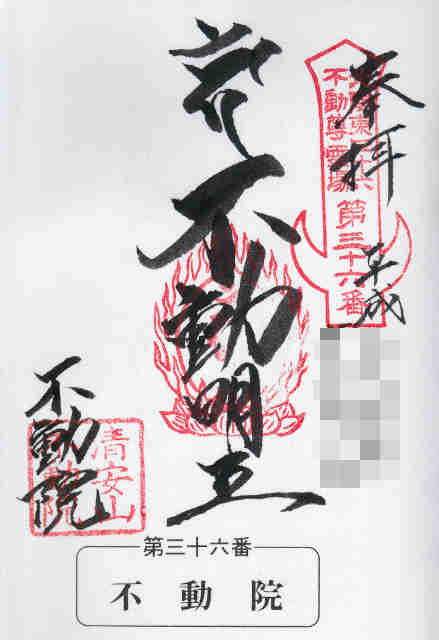 奉拝
平成
不動尊霊場
第三十六番
不動明王
不動院
清安山
第三十六番
不動院